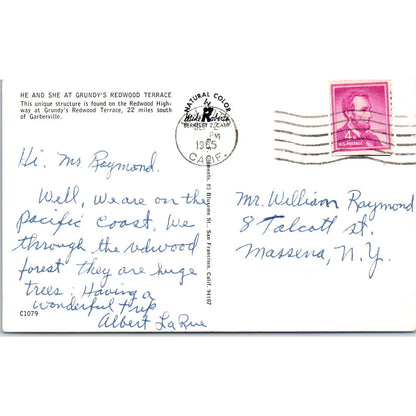 HE AND SHE AT GRUNDY'S REDWOOD TERRACE
This unique structure is found on the Redwood High-
way at Grundy's Redwood Terrace, 22 miles south
of Garberville.
NATURAL COLOR
by
Mike Roberts
BERKELEY 2, CALIF.
PM
1965
CALIF.
4¢
U.S. POSTAGE
Hi. Mr Raymond.
Well, we are on the
Pacific Coast. We
through the redwood
forest they are huge
trees. Having a
wonderful trip
Albert LaRue
C1079
85 Bluxome St., San Francisco, Calif. 94107
Mr. William Raymond
8 Talcott st.
Massena, N.Y.